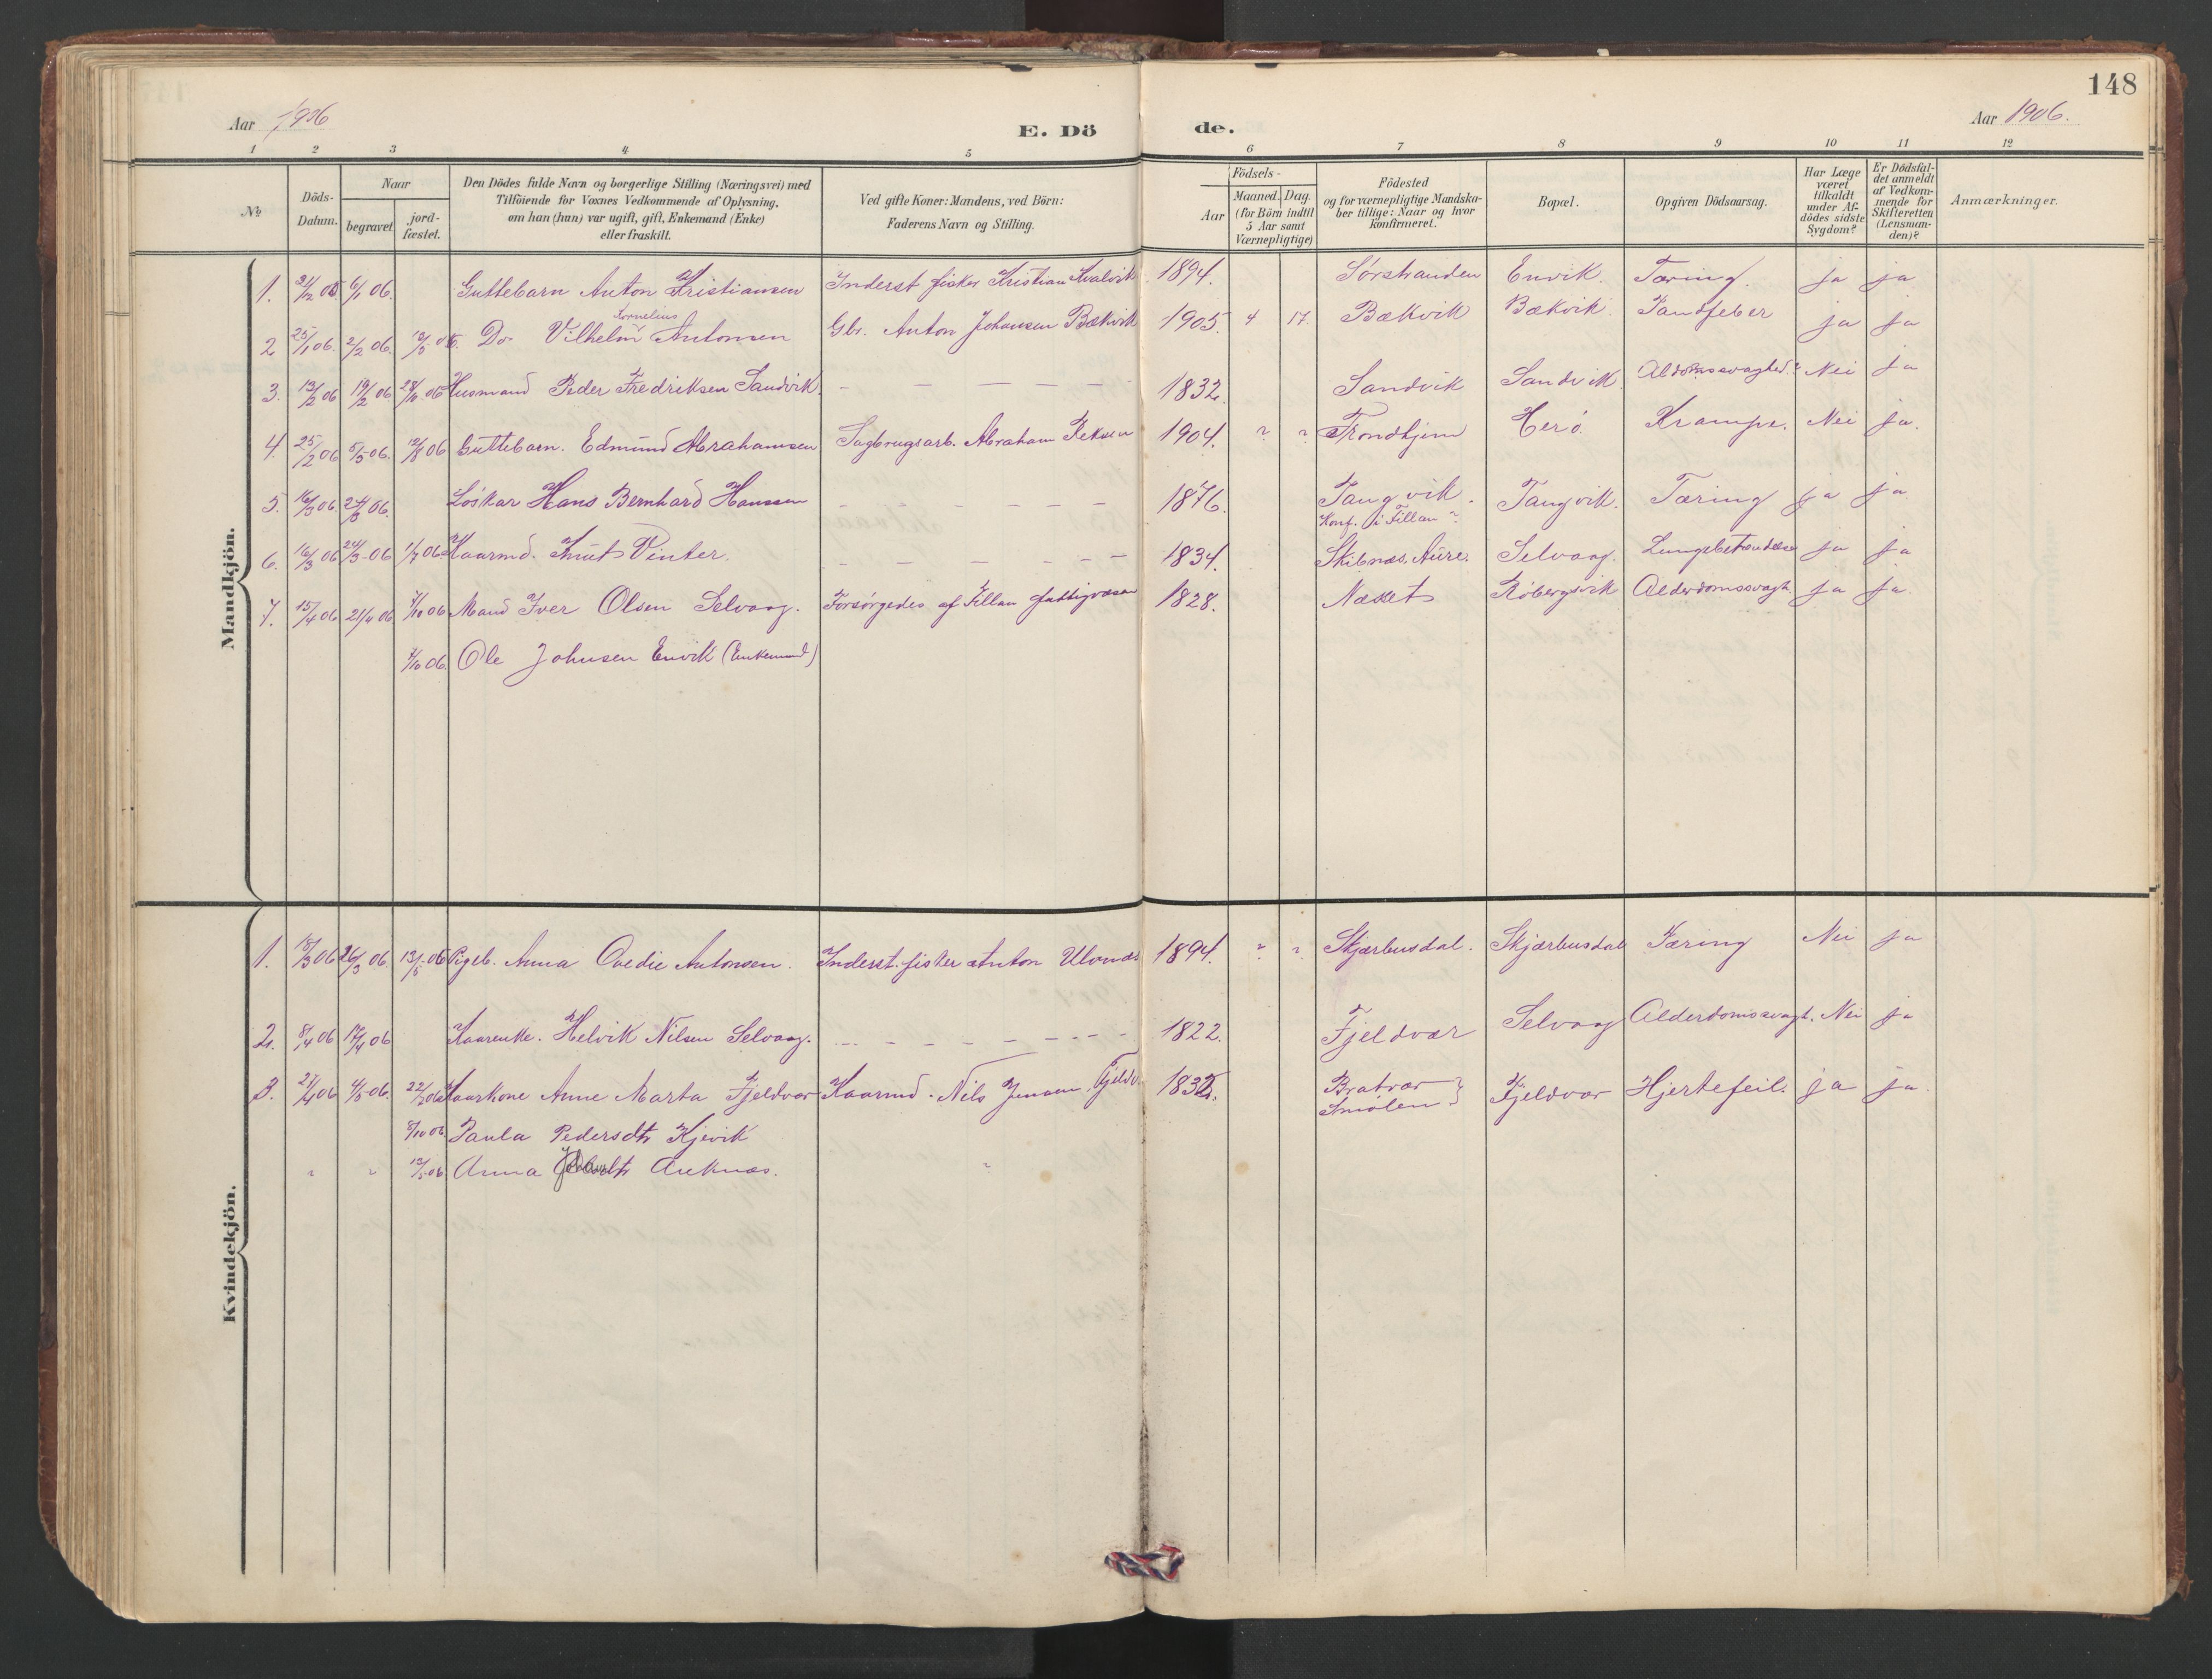 148
Aar 1906
E. Dö de.
Aar 1906.
1 2 3 4 5 6 7 8 9 10 11 12
№
Döds-Datum.
Naar
begravet
jord-fæstet.
Den Dödes fulde Navn og borgerlige Stilling (Næringsvei) med
Tilföiende for Voxnes Vedkommende af Oplysning,
om han (hun) var ugift, gift, Enkemand (Enke)
eller fraskilt.
Ved gifte Koner: Mandens, ved Börn:
Faderens Navn og Stilling.
Födsels-
Aar
Maaned. Dag.
(for Börn indtil
5 Aar samt
Værnepligtige)
Födested
og for værnepligtige Mandska-
ber tillige: Naar og hvor
konfirmeret.
Bopæl.
Opgiven Dödsaarsag.
Har Læge
været
tilkaldt
under Af-
dödes sidste
Sygdom?
Er Dödsfal-
det anmeldt
af Vedkom-
mende for
Skifteretten
(Lensman-
den)?
Anmærkninger.
Mandkjön.
1. 31/12 05 6/1 06. Guttebarn Anton Kristiansen Inderst fisker Kristian Kvalvik 1894. Sørstranden Envik. Tæring. ja ja
Kornelius
2. 25/1 06. 2/2 06. Do Vilhelm Antonsen Gbr. Anton Johansen Bækvik 1905. 4 17 Bækvik Bækvik. ja ja
3. 13/2 06 19/2 06 Husmand Peder Fredriksen Sandvik. – – – – – 1832. Sandvik Sandvik Nei ja
4. 25/2 06 5/3 06. 12/8 06 Guttebarn. Edmund Abrahamsen Sagbrugsarb. Abraham 1904. ? ? Trondhjem Herø Krampe. Nei ja.
5. 16/3 06 24/3 06. Løskar Hans Bernhard Hanssen – – – – – 1876. Tangvik. Tangvik. Tæring ja ja.
Konf. i Fillan ?
6. 16/3 06 24/3 06 1/7 06 Kaarmd. Knut Vinter. – – – – – 1834. Skibnæs, Aure. Selvaag. Lungebetændelse ja ja
7. 15/4 06 21/4 06 7/10 06 Mand Iver Olsen Selvaag. Forsørgedes af Fillan fattigvæsen 1828. Næsset Røbergsvik Alderdomssvagh. ja ja.
7/10 06. Ole Johnsen Envik (Enkemand)
Kvindekjön.
1. 18/3 06 26/3 06. 13/5 06 Pigeb. Anna Ovedie Antonsen. Inderst. fisker Anton Ulvnæs 1894. ? ? Skjærbusdal. Skjærbusdal Tæring Nei ja
2. 8/4 06 17/4 06 Kaarenke. Helvik Nilsen Selvaag. – – – – – – 1822. Fjeldvær Selvaag Alderdomssvagh. Nei ja
3. 27/4 06 4/5 06. Kaarkone Anne Marta Fjeldvær Kaarmd. Nils Jensen Fjeldv. Bratvær } Fjeldvær Hjertefeil. ja ja
Smølen
8/10 06 Paula Pedersdtr Kjevik
" " 06 Anna Auknæs. "